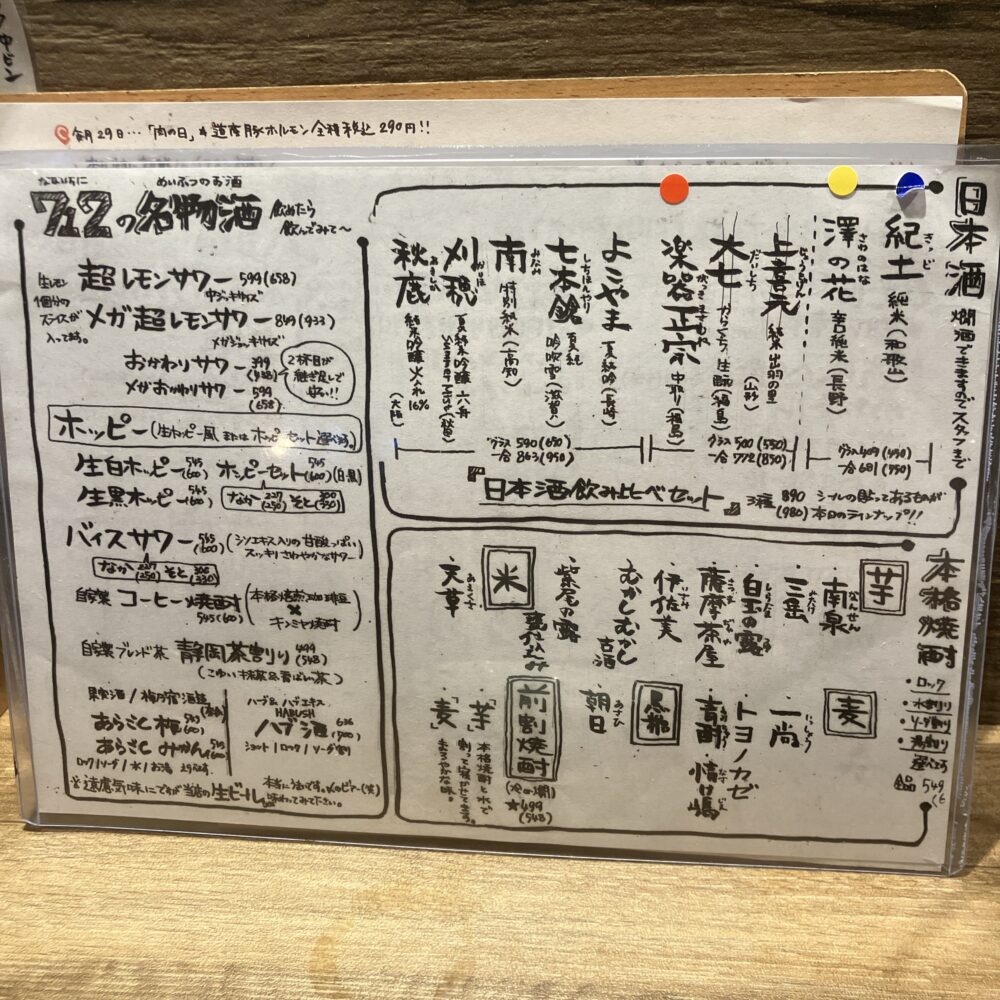 中ビン
毎月29日…「肉の日」は道産豚ホルモン全種税込290円!!
めいぶつのお酒
712の名物酒 飲めたら
飲んでみて〜
生レモン
1個分の
スライスが
入ってます。
超レモンサワー 599(658)
中ジョッキサイズ
メガ超レモンサワー 849(933)
メガジョッキサイズ
おかわりサワー 399
(438)
メガおかわりサワー 599
(658)
2杯目が
継ぎ足しで
安い!!
ホッピー(生ホッピー風またはホッピーセット選べます。)
生白ホッピー 545(600) ホッピーセット 545(600)(白・黒)
生黒ホッピー 545(600) なか 227(250) そと 300(330)
バイスサワー 545(600) (シソエキス入りの甘酸っぱい
スッキリさわやかなサワー)
なか 227(250) そと 300(330)
自家製 コーヒー焼酎 (本格焙煎珈琲豆
×
キンミヤ焼酎)
545(600)
自家製ブレンド茶 静岡茶割り 499(548)
(こゆい抹茶&香ばし茶)
果実酒/梅乃宿酒造
あらごし梅
あらごしみかん 545(600)
ロック/ソーダ/水/お湯
ハブ&ハブエキス
HABUSH
ハブ酒 636(700)
ショット/ロック/ソーダ割
※遠慮気味にですが当店の生ビール
本当に
味わってみて下さい。
日本酒 燗酒できますのでスタッフまで
紀土 きっど 純米(和歌山)
澤の花 さわのはな 辛口純米(長野)
グラス409(450)
一合681(750)
上喜元 じょうきげん 純米 出羽の里(山形)
大七 だいしち からくち 生酛(福島)
楽器正宗 がっきまさむね 中取り(福島)
グラス500(550)
一合772(850)
よこやま 夏純吟(長崎)
七本鎗 しちほんやり 夏純 吟吹雪(滋賀)
南 みなみ 特別純米(高知)
刈穂 かりほ 夏純米吟醸 六舟
秋鹿 あきしか 純米吟醸 火入れ 16%(大阪)
グラス590(650)
一合863(950)
『日本酒飲み比べセット』 3種 890
(980)
シールの貼ってあるものが
本日のラインナップ!!
本格焼酎
・ロック
・水割り
・ソーダ割り
・湯割り
選べます
全品 549
芋
・南泉 なんせん
・三岳 みたけ
・白玉の露 しらたま つゆ
・薩摩茶屋 さつま ぢゃや
・伊佐美 いさみ
・むかしむかし 古酒
・紫尾の露 甕仕込み
米
・天草 あまくさ
麦
・一尚 いっしょう
・トヨノカゼ
・青酎 情け嶋
黒糖
・朝日 あさひ
前割焼酎
(冷or燗)
★499
(548)
「芋」
「麦」
本格焼酎と水で
割って寝かせてます。
まろやかな味。